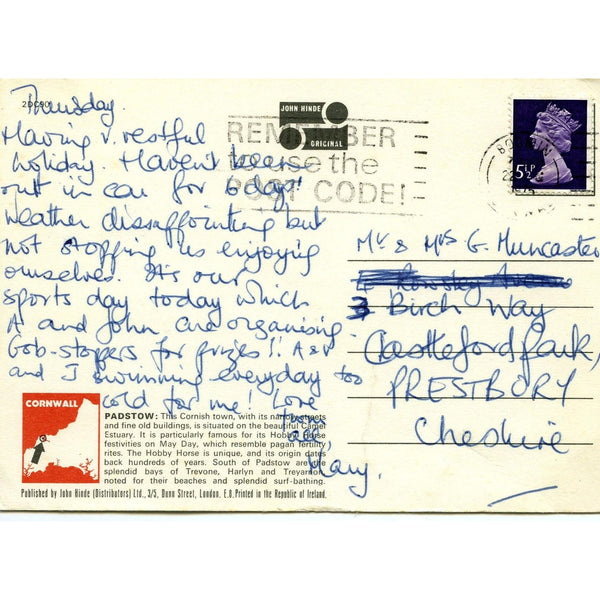 2DC901
Thursday
Having v. restful
holiday. Haven't been
out in car for 6 days!
Weather dissappointing but
not stopping us enjoying
ourselves. It's our
sports day today which
A and John are organising.
Gob-stoppers for prizes!! A & V
and J swimming everyday too
cold for me! Love
from
Mary.
JOHN HINDE
ORIGINAL
REMEMBER
to use the
POST CODE!
5½P
Mr & Mrs G. Muncaster
3 Birch Way
Castleford Park,
PRESTBURY
Cheshire
CORNWALL
PADSTOW: This Cornish town, with its narrow streets
and fine old buildings, is situated on the beautiful Camel
Estuary. It is particularly famous for its Hobby Horse
festivities on May Day, which resemble pagan fertility
rites. The Hobby Horse is unique, and its origin dates
back hundreds of years. South of Padstow are the
splendid bays of Trevone, Harlyn and Treyarnon
noted for their beaches and splendid surf-bathing.
Published by John Hinde (Distributors) Ltd., 3/5, Dunn Street, London, E.8. Printed in the Republic of Ireland.